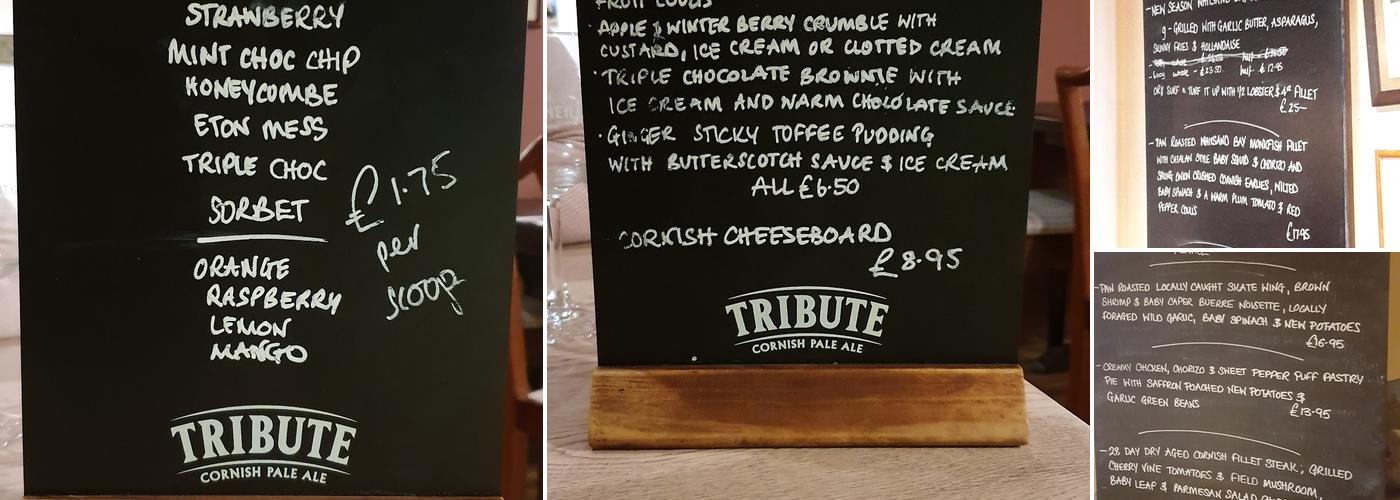 STRAWBERRY
MINT CHOC CHIP
HONEYCOMBE
ETON MESS
TRIPLE CHOC
£1.75
per
scoop
SORBET
ORANGE
RASPBERRY
LEMON
MANGO
TRIBUTE
CORNISH PALE ALE
FRUIT COULIS
· APPLE & WINTER BERRY CRUMBLE WITH
CUSTARD, ICE CREAM OR CLOTTED CREAM
· TRIPLE CHOCOLATE BROWNIE WITH
ICE CREAM AND WARM CHOCOLATE SAUCE
· GINGER STICKY TOFFEE PUDDING
WITH BUTTERSCOTCH SAUCE & ICE CREAM
ALL £6.50
CORNISH CHEESEBOARD
£8.95
TRIBUTE
CORNISH PALE ALE
- NEW SEASON WHITSAND BAY
GRILLED WITH GARLIC BUTTER, ASPARAGUS,
SKINNY FRIES & HOLLANDAISE
- 600g WHOLE - £23.50 HALF - £12.95
OR SURF N TURF IT UP WITH 1/2 LOBSTER & 4oz FILLET
£25-
- PAN ROASTED WHITSAND BAY MONKFISH FILLET
WITH CATALAN STYLE BABY SQUID & CHORIZO AND
SPRING ONION CRUSHED CORNISH EARLIES, WILTED
BABY SPINACH & A WARM PLUM TOMATO & RED
PEPPER COULIS
£17.95
- PAN ROASTED LOCALLY CAUGHT SKATE WING, BROWN
SHRIMP & BABY CAPER BUERRE NOISETTE, LOCALLY
FORAGED WILD GARLIC, BABY SPINACH & NEW POTATOES
£16.95
- CREAMY CHICKEN, CHORIZO & SWEET PEPPER PUFF PASTRY
PIE WITH SAFFRON POACHED NEW POTATOES &
GARLIC GREEN BEANS
£13.95
- 28 DAY DRY AGED CORNISH FILLET STEAK, GRILLED
CHERRY VINE TOMATOES & FIELD MUSHROOM,
BABY LEAF & PARMESAN SALAD